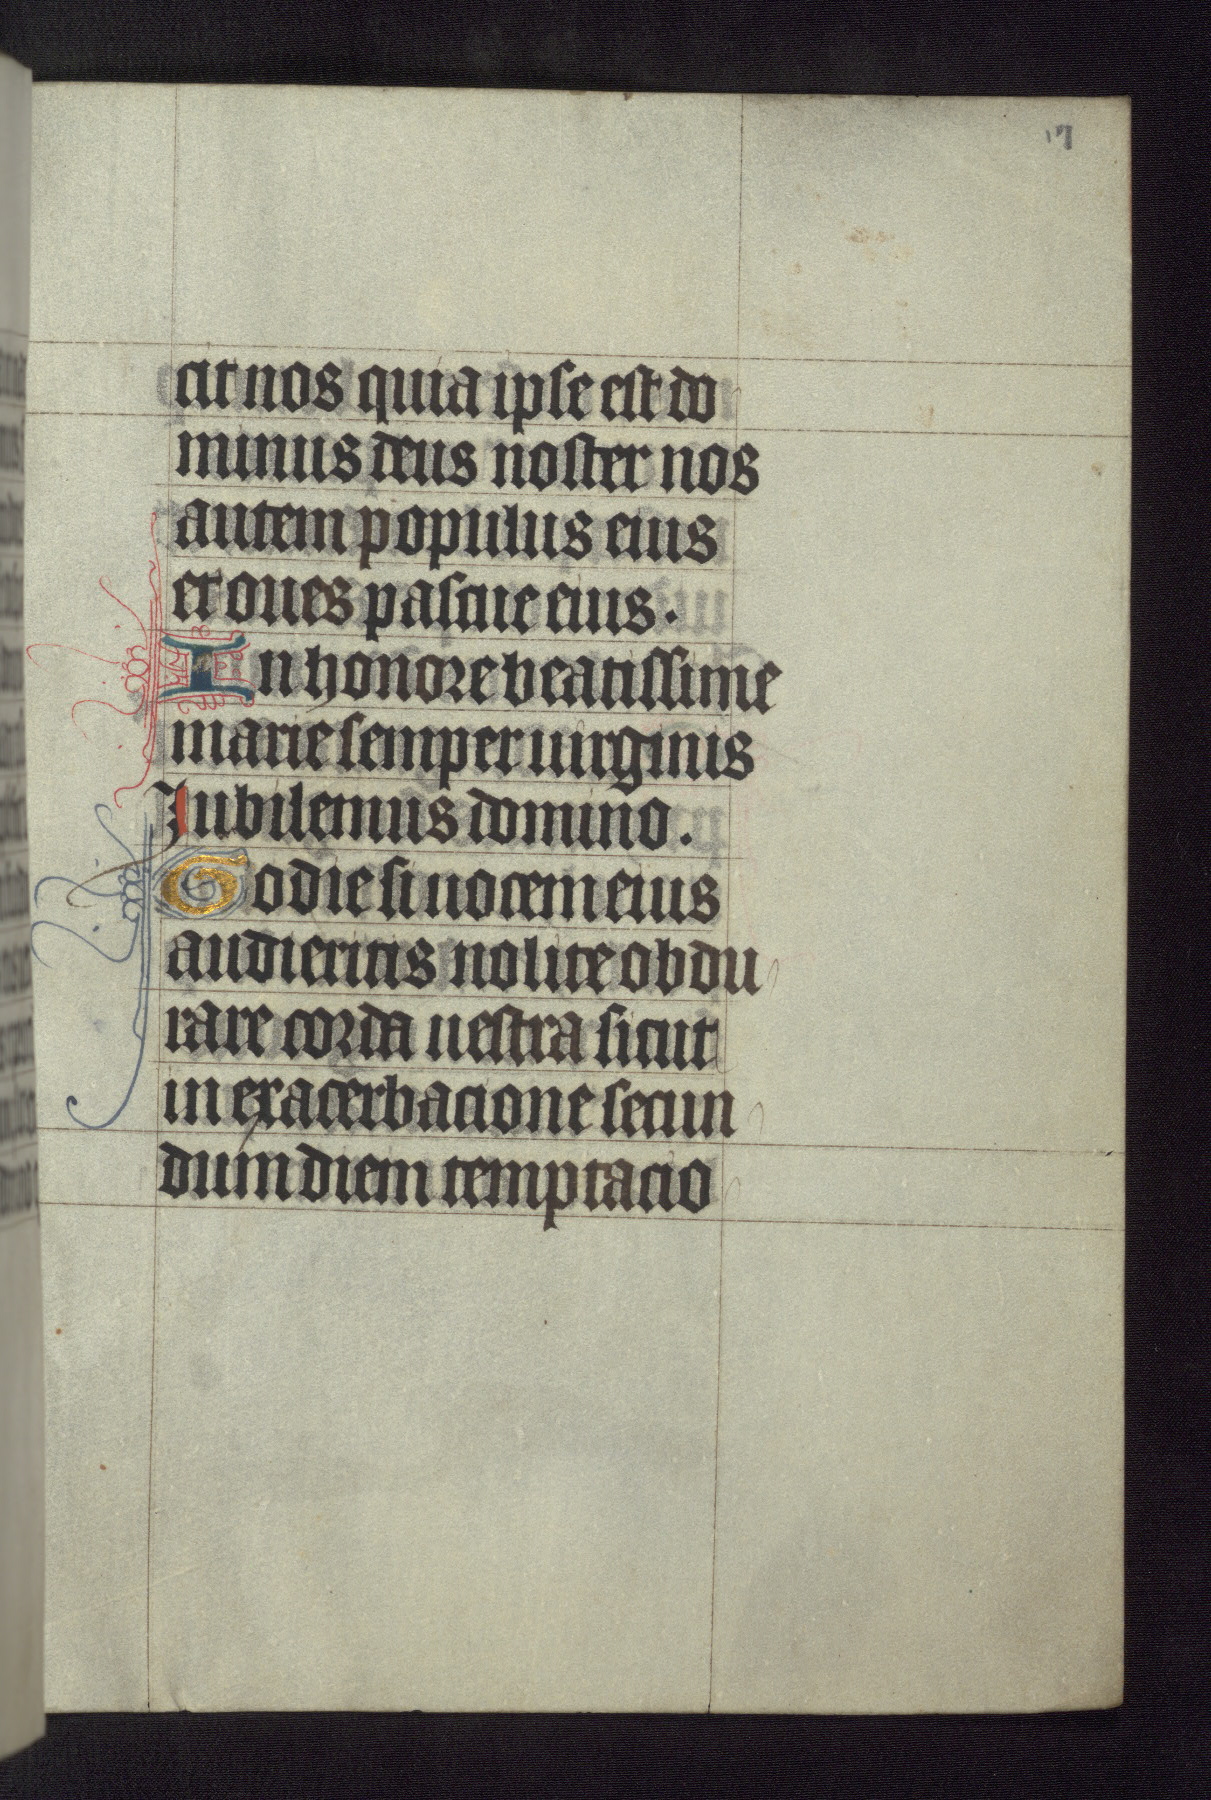 17
cit nos quia ipse est do
minus deus noster nos
autem populus eius
et oues pascue eius.
In honore beatissime
marie semper uirginis
Iubilemus domino.
Hodie si uocem eius
audieritis nolite obdu
rare corda uestra sicut
in exacerbacione secun
dum diem temptacio